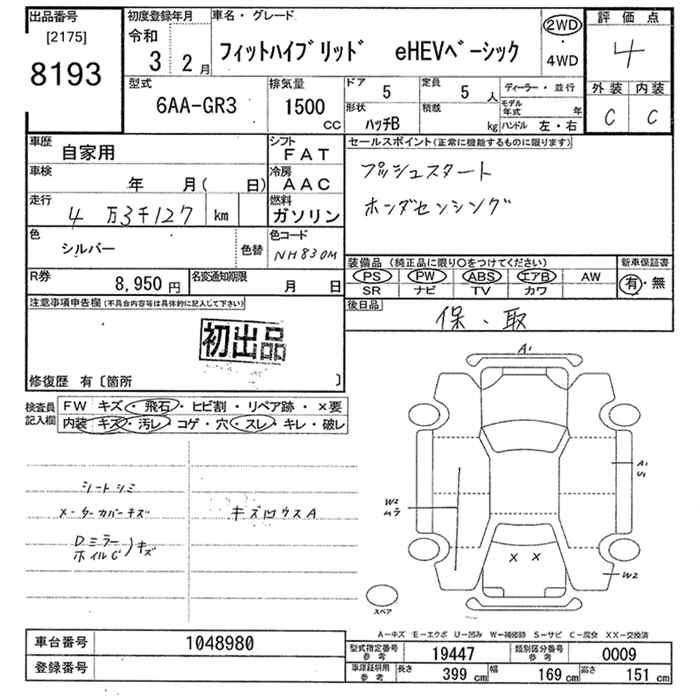 出品番号
[2175]
8193
初度登録年月
令和
3 2月
車名・グレード
フィットハイブリッド eHEVベーシック
2WD
・
4WD
評価点
4
外装 内装
C C
型式
6AA-GR3
排気量
1500
CC
ドア 5
定員 5 人
形状
ハッチB
積載
kg
ディーラー・並行
モデル年式 年
ハンドル 左・右
車歴
自家用
シフト
FAT
車検
年 月( 日)
冷房
AAC
走行
4 万3千127 km
燃料
ガソリン
色
シルバー
色替
色コード
NH830M
R券
8,950 円
名変通知期限
月 日
セールスポイント(正常に機能するものに限ります)
プッシュスタート
ホンダセンシング
装備品 (純正品に限り○をつけてください)
PS PW ABS エアB AW
SR ナビ TV カワ
新車保証書
有・無
後日品
保・取
注意事項申告欄(不具合内容等は具体的に記入して下さい)
初出品
修復歴 有〔箇所 〕
検査員
記入欄
FW キズ・飛石・ヒビ割・リペア跡・×要
内装 キズ・汚レ・コゲ・穴・スレ・キレ・破レ
シートシミ
メーターカバーキズ
Dミラー
ホイルC)キズ
キズ凹ウスA
A1
W2
ムラ
A1
U1
X X
W2
A1
スペア
A-キズ E-エクボ U-凹み W-補修跡 S-サビ C-腐食 XX-交換済
車台番号 1048980
登録番号
型式指定番号
参考
19447
類別区分番号
参考
0009
車庫証明用
参考
長さ 399 cm 幅 169 cm 高さ 151 cm